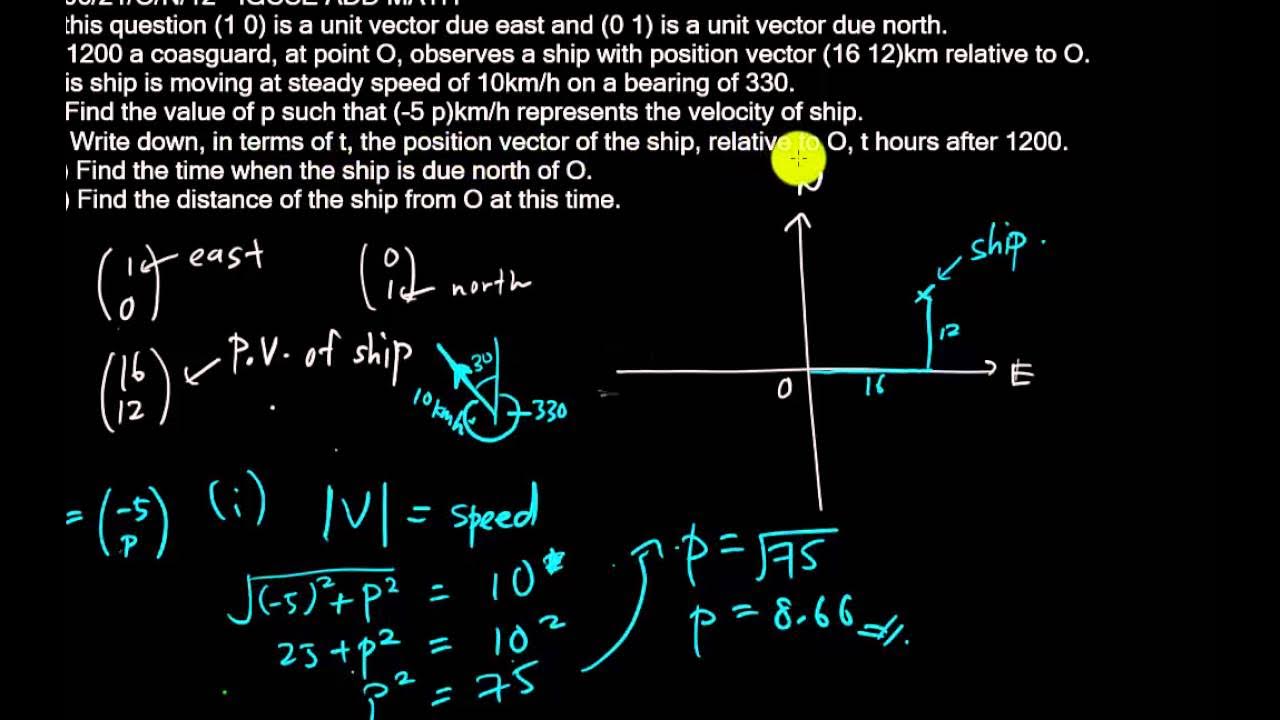 06/21/O/N/12 IGCSE ADD MATH
this question (1 0) is a unit vector due east and (0 1) is a unit vector due north.
1200 a coasguard, at point O, observes a ship with position vector (16 12)km relative to O.
is ship is moving at steady speed of 10km/h on a bearing of 330.
Find the value of p such that (-5 p)km/h represents the velocity of ship.
Write down, in terms of t, the position vector of the ship, relative to O, t hours after 1200.
) Find the time when the ship is due north of O.
) Find the distance of the ship from O at this time.
N
(1 0) east
(0 1) north
ship
12
16
O
E
(16 12) P.V. of ship
30
10km/h
330
= (-5 p) (i) |V| = speed
√(-5)²+p² = 10
25 + p² = 10²
p² = 75
p = √75
p = 8.66